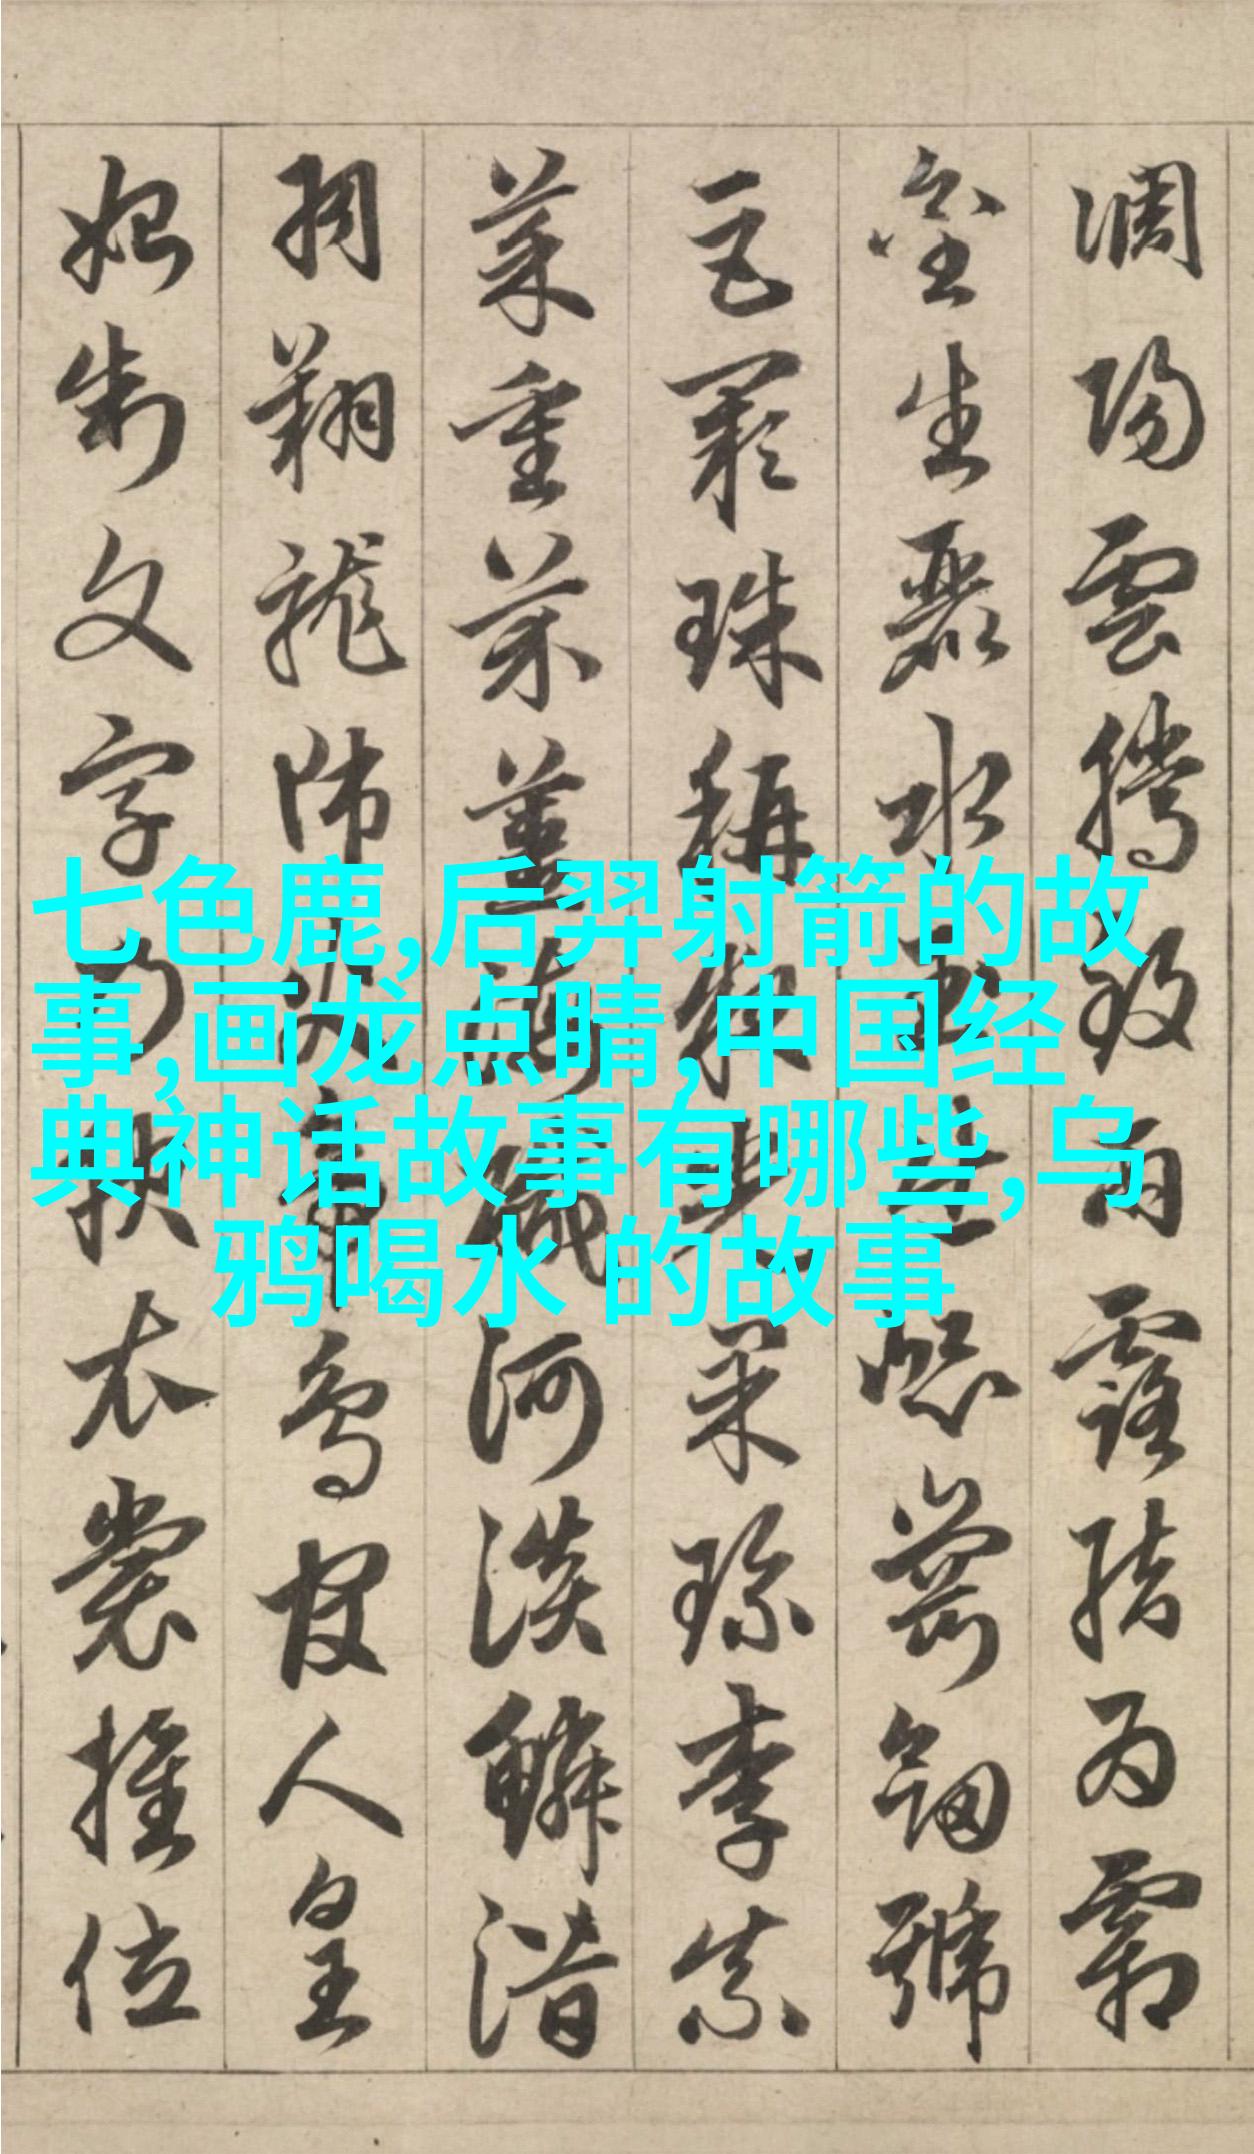 調陽雲騰致雨露結為霜
金生麗水玉出崐崗劍號
巨闕珠稱夜光果珍李柰
菜重芥薑海醎河淡鱗潛
羽翔龍師火帝鳥官人皇
始制文字乃服衣裳推位
七色鹿,后羿射箭的故
事,画龙点睛,中国经
典神话故事有哪些,乌
鸦喝水 的故事